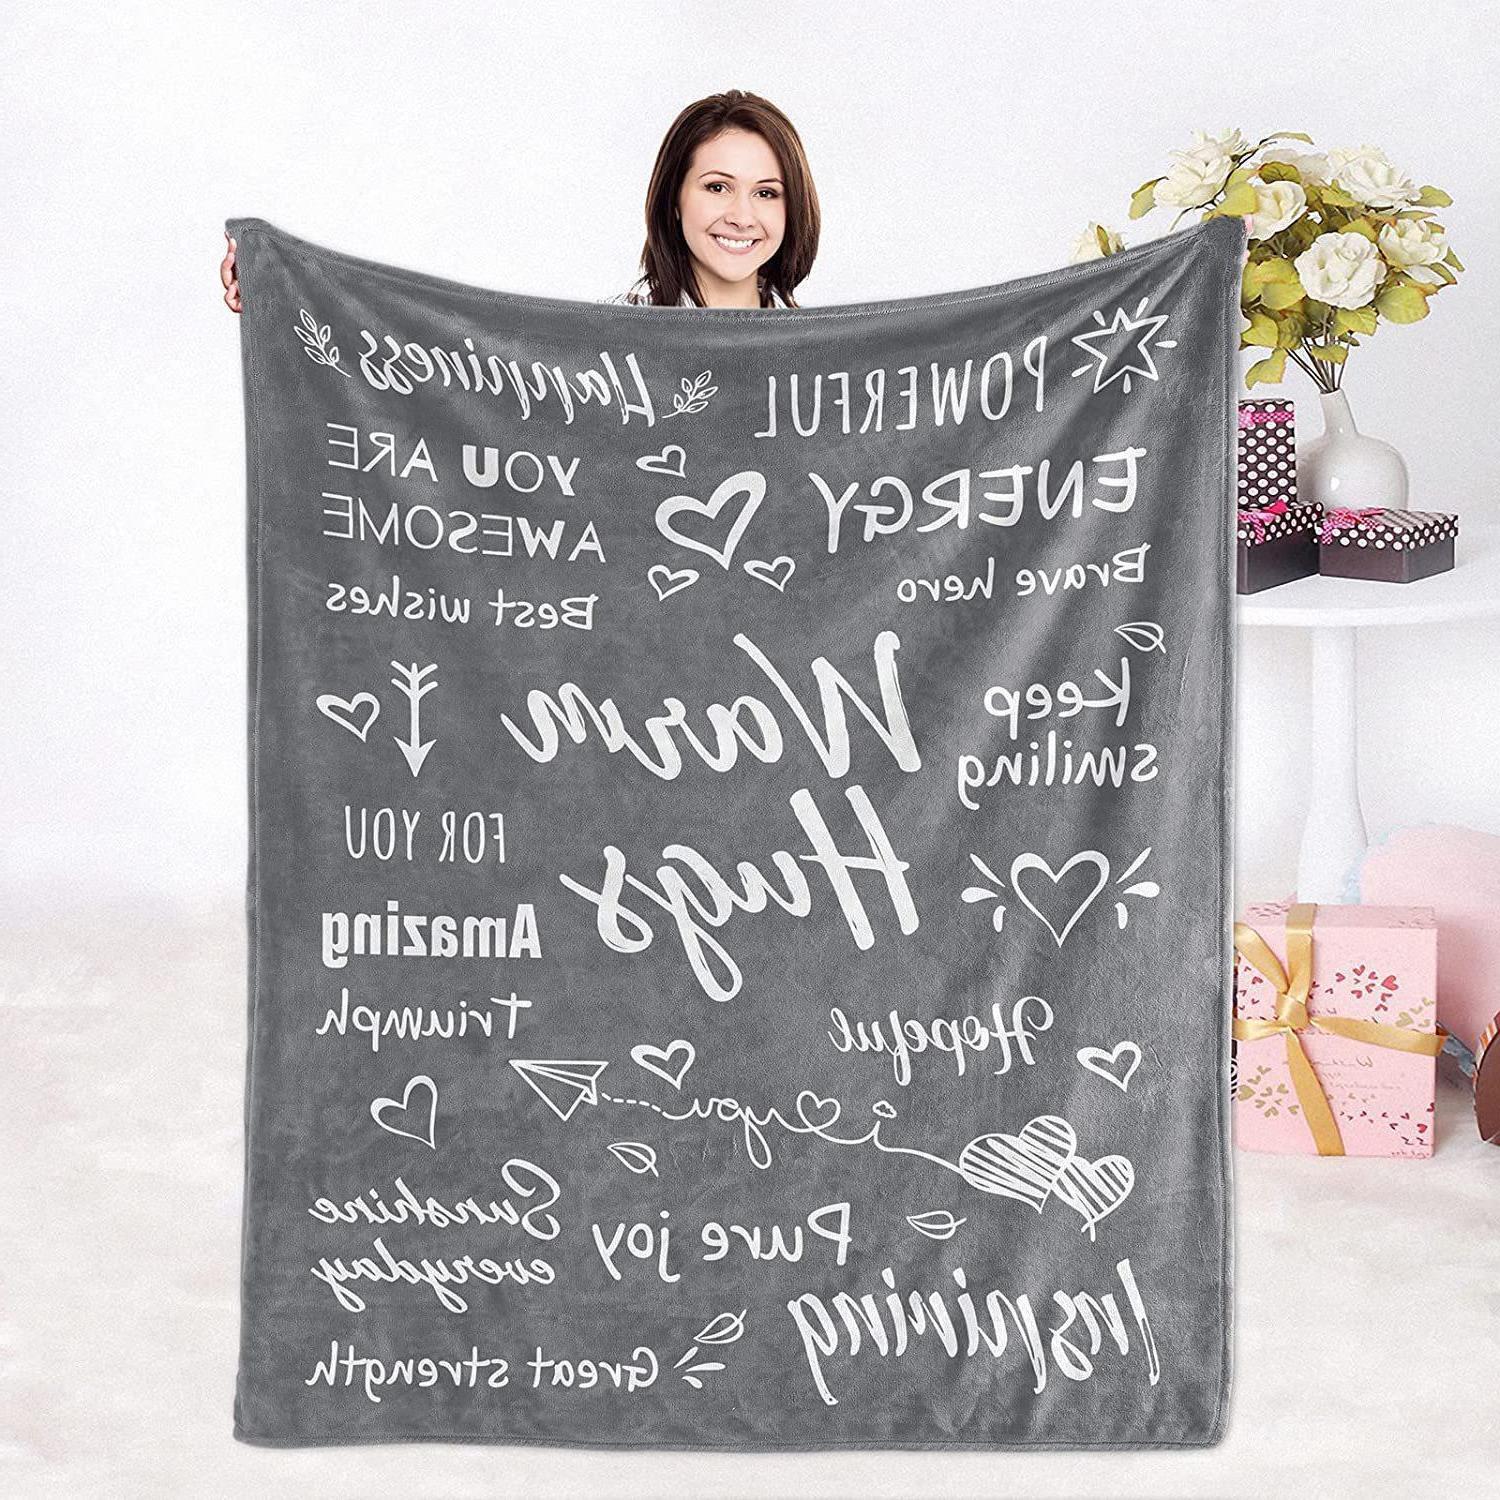 POWERFUL
Happiness
ENERGY
YOU ARE
AWESOME
Brave hero
Best wishes
Warm
Hugs
Keep
smiling
FOR YOU
Amazing
Triumph
Hopeful
i you
Sunshine
everyday
Pure joy
Inspiring
Great strength